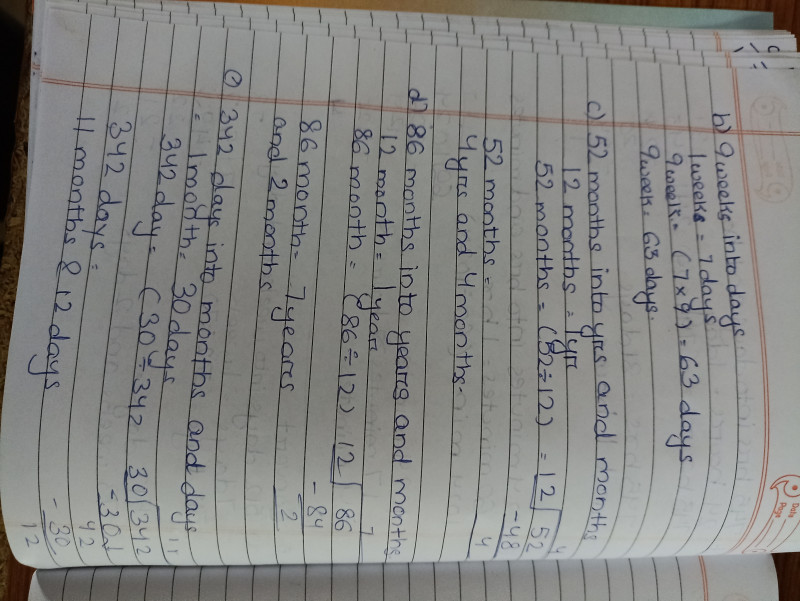 Date
Page
b) 9 weeks into days
1 weeks = 7 days
9 week = (7 x 9) = 63 days
9 week = 63 days.
c) 52 months into yrs and months
12 months = 1 yr
52 months = (52 ÷ 12) = 12 52 4
- 48
4
52 months =
4 yrs and 4 months.
d) 86 months into years and months
12 month = 1 year
86 month = (86 ÷ 12) 12 86 7
- 84
2
86 month = 7 years
and 2 months
e) 342 days into months and days
= 1 month = 30 days
342 day = (30 ÷ 342) 30 342 11
- 30
42
- 30
12
342 days =
11 months & 12 days